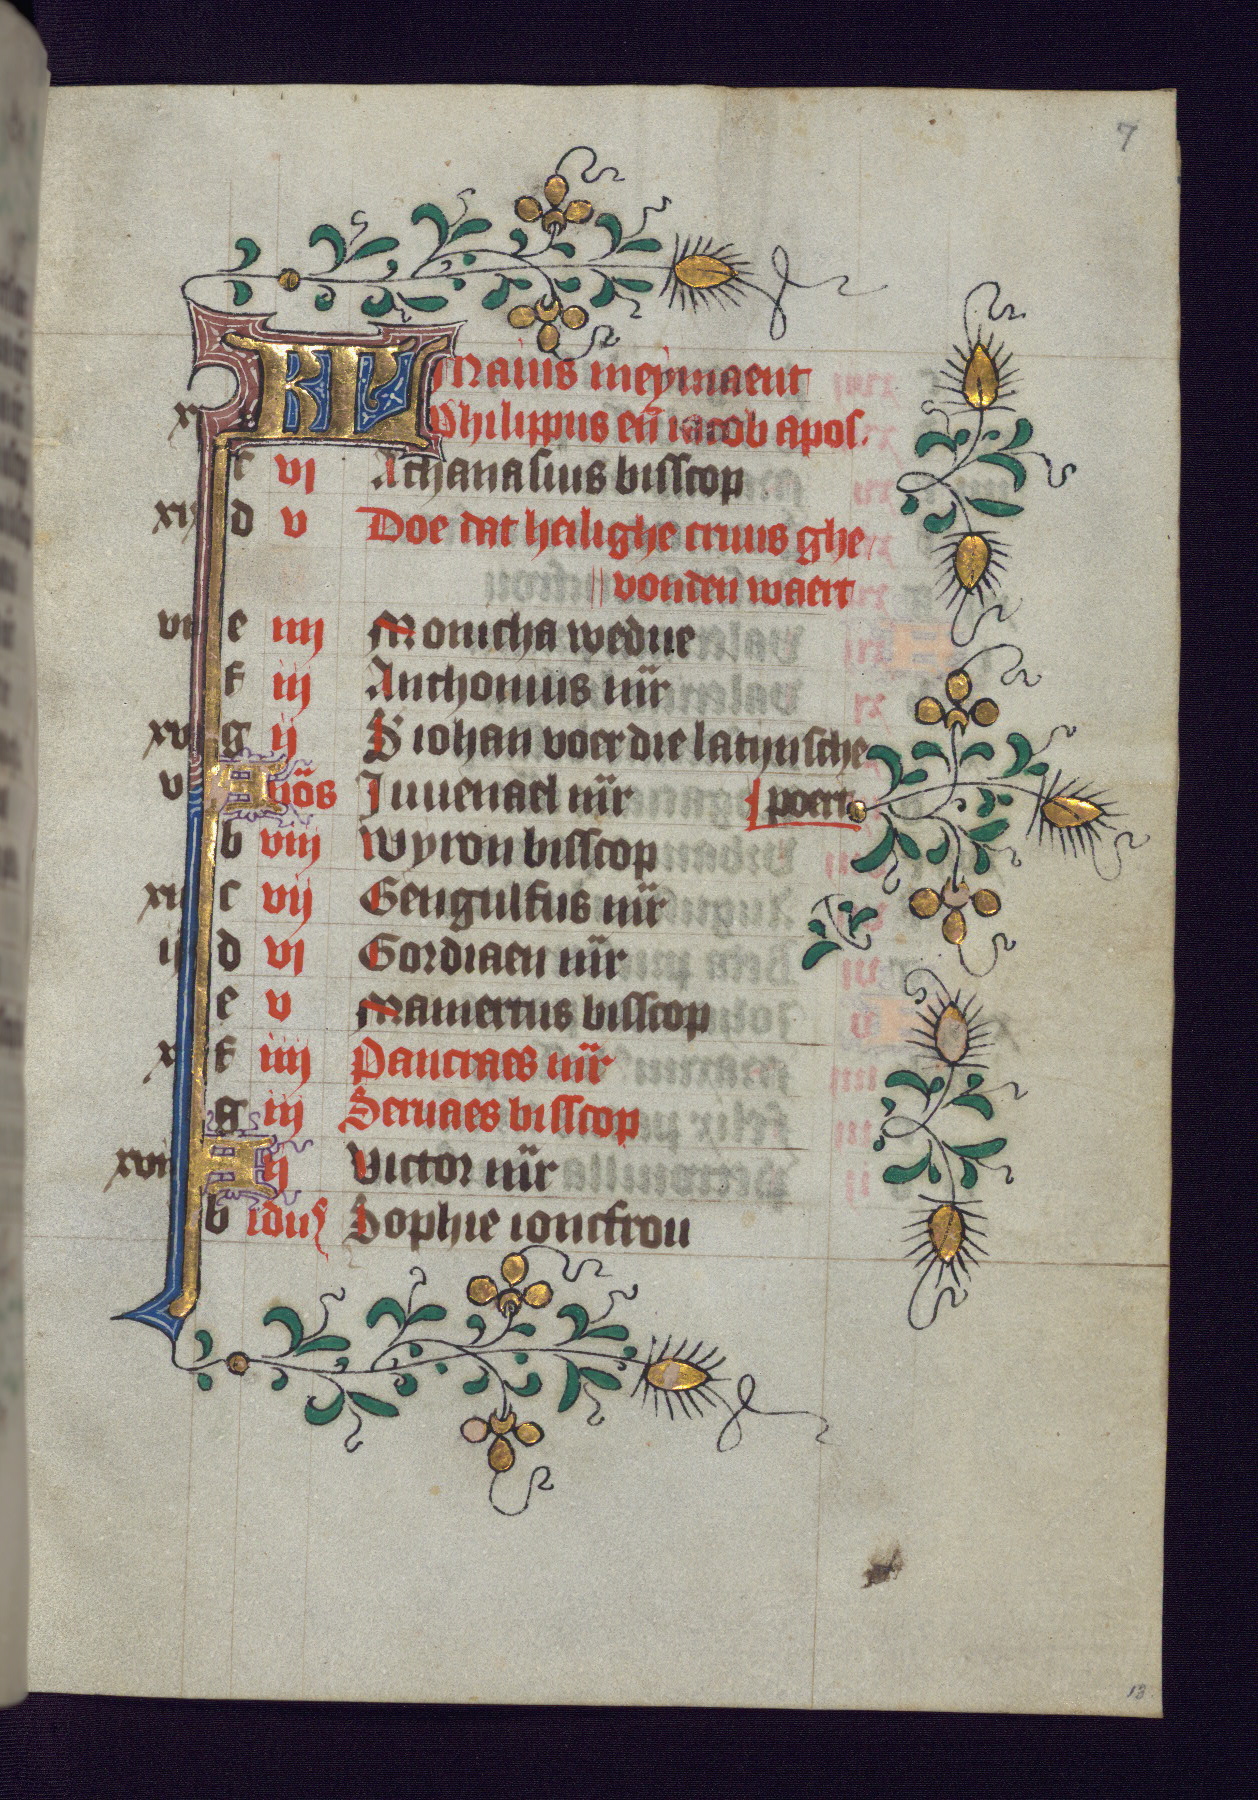 7
KL Maius meymaent
Philippus eñ iacob apos.
c vi Athanasius bisscop
xix d v Doe dat heilighe cruus ghe
vonden waert
viii e iiij Monicha wedue
f iij Anthonius mr̄
xvi g ij S iohan voer die latijnsche
v A nōs Juuenael mr̄ poert
b viij Wyron bisscop
xiii c vij Gengulfus mr̄
ij d vi Gordiaen mr̄
e v Mamertus bisscop
x f iiij Pancraes mr̄
g iij Seruaes bisscop
xviii A ij Victor mr̄
b idus Sophie ioncfrou
13